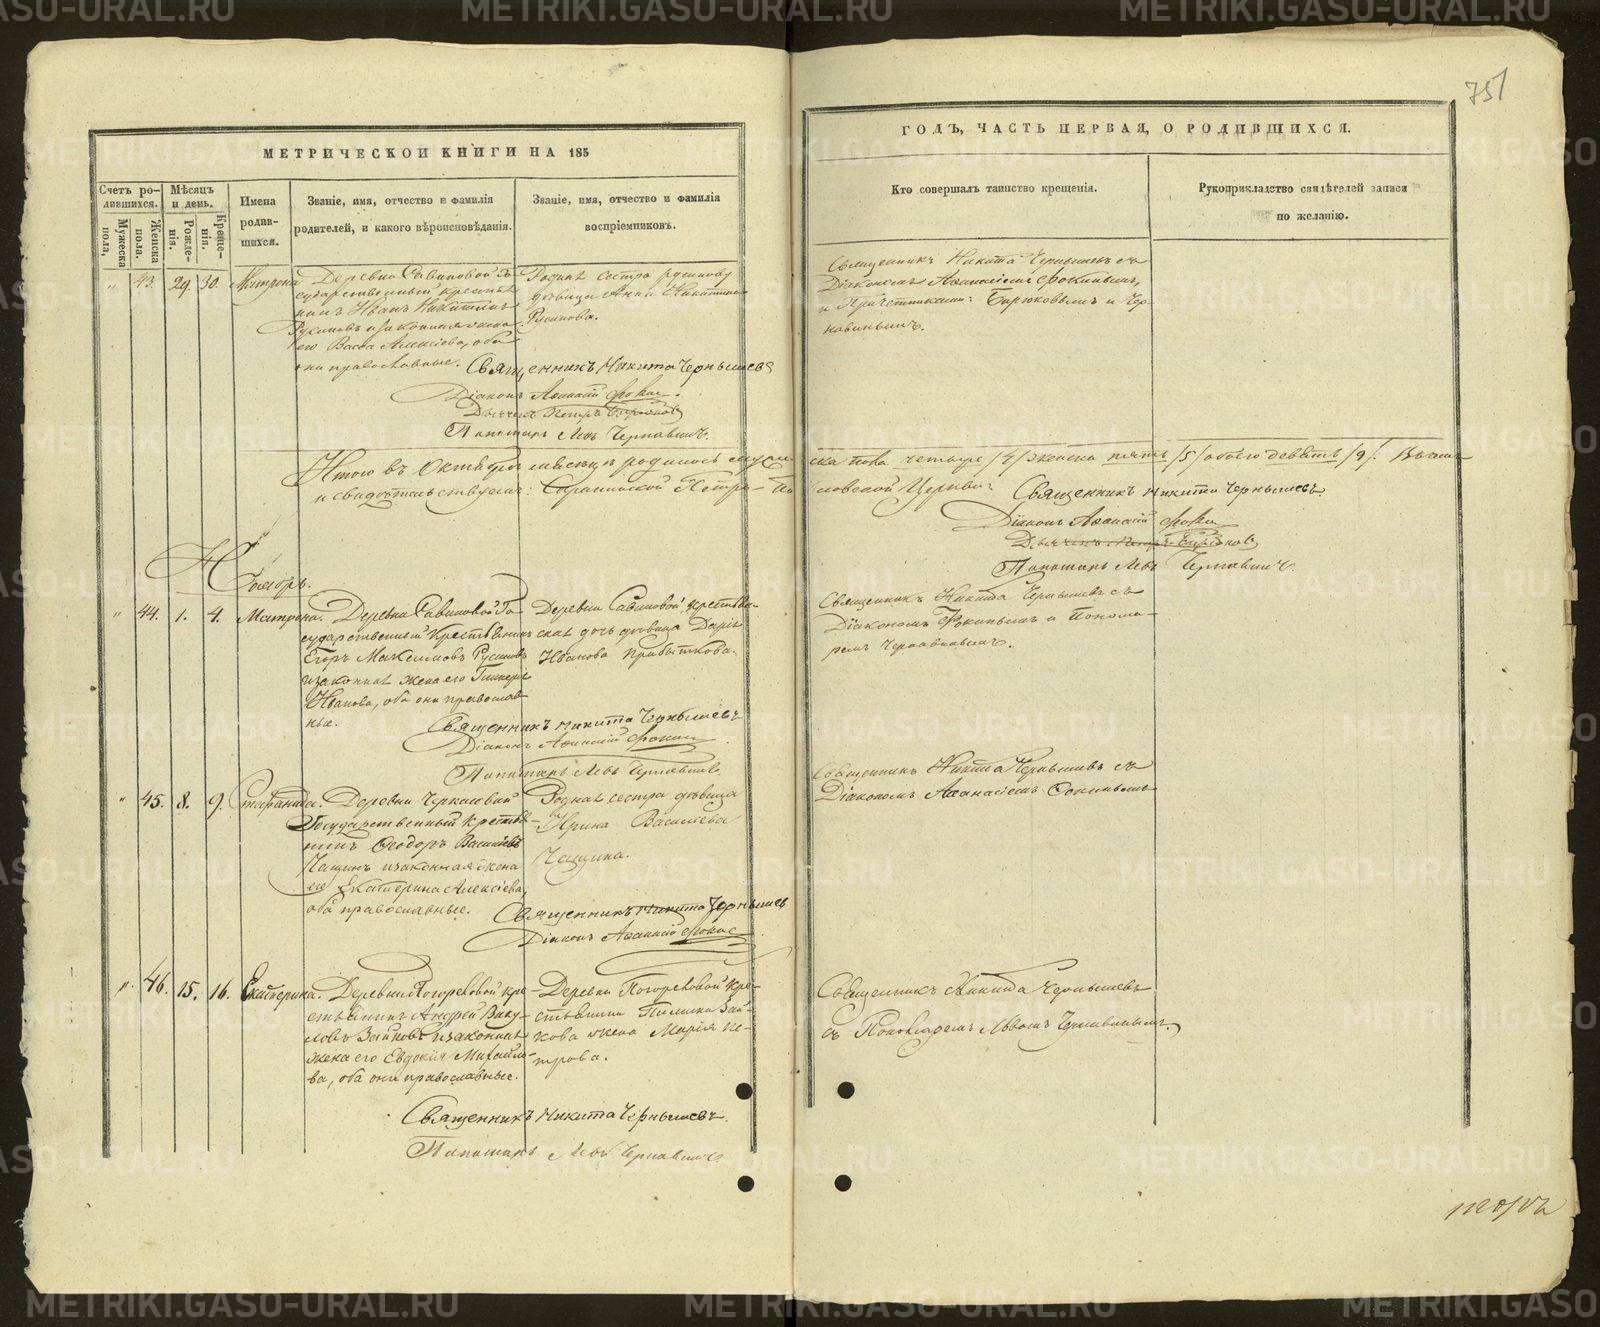 751
МЕТРИЧЕСКОЙ КНИГИ НА 185
ГОДЪ, ЧАСТЬ ПЕРВАЯ, О РОДИВШИХСЯ.
Счетъ родившихся.
Мужеска пола,
Женска пола.
Мѣсяцъ и день.
Рожденія.
Крещенія.
Имена родившихся.
Званіе, имя, отчество и фамилія
родителей, и какого вѣроисповѣданія.
Званіе, имя, отчество и фамилія
воспріемниковъ.
Кто совершалъ таинство крещенія.
Рукоприкладство свидѣтелей записи
по желанію.
„ 43. 29. 30. Матрона
Деревни Савиновой Го-
сударственный крестья-
нинъ Иванъ Никитинъ
Русиновъ и законная жена
его Васса Алексіева, оба
они православные.
Родная сестра Русинову
дѣвица Анна Никитина
Русинова.
Священникъ Никита Чернышевъ съ
Діакономъ Аѳанасіемъ Фокинымъ,
и Причетниками: Бирюковымъ и Чер-
навинымъ.
Священникъ Никита Чернышевъ
Діаконъ Аѳанасій Фокинъ.
Дьячекъ Петръ Бирюковъ
Пономарь Левъ Чернавинъ.
Итого въ Октябрѣ мѣсяцѣ родилось муже-
ска пола четыре /4/ женска пять /5/ обоего девять /9/. Въ чемъ
и свидѣтельствуемъ: Петро-
павловской Церкви:
Священникъ Никита Чернышевъ
Діаконъ Аѳанасій Фокинъ
Дьячекъ Петръ Бирюковъ
Пономарь Левъ Чернавинъ.
Ноябрь.
„ 44. 1. 4. Матрона.
Деревни Савиновой Го-
сударственный Крестьянинъ
Егоръ Максимовъ Русиновъ
и законная жена его
Иванова, оба они православ-
ные.
Деревни Савиновой крестьян-
ская дочь дѣвица Дарія
Иванова Прибыткова.
Священникъ Никита Чернышевъ съ
Діакономъ Фокинымъ и Понома-
ремъ Чернавинымъ.
Священникъ Никита Чернышевъ
Діаконъ Аѳанасій Фокинъ
Пономарь Левъ Чернавинъ.
„ 45. 8. 9. Стефанида.
Деревни
Государственный Крестья-
нинъ Ѳеодоръ Васильевъ
Чащинъ и законная жена
его Екатерина Алексіева,
оба православные.
Родная сестра дѣвица
Ирина Василіева
Чащина.
Священникъ Никита Чернышевъ съ
Діакономъ Аѳанасіемъ Фокинымъ
Священникъ Никита Чернышев
Діаконъ Аѳанасій Фокинъ
„ 46. 15. 16. Екатерина.
Деревни Погорѣловой кре-
стьянинъ Андрей Вику-
ловъ Зайковъ и законная
жена его Евдокія Михайло-
ва, оба они православные.
Деревни Погорѣловой кре-
стьянина Зай-
кова жена Марія Пе-
трова.
Священникъ Никита Чернышевъ
съ Пономаремъ Львомъ Чернавинымъ.
Священникъ Никита Чернышевъ.
Пономарь Левъ Чернавинъ
METRIKI.GASO-URAL.RU